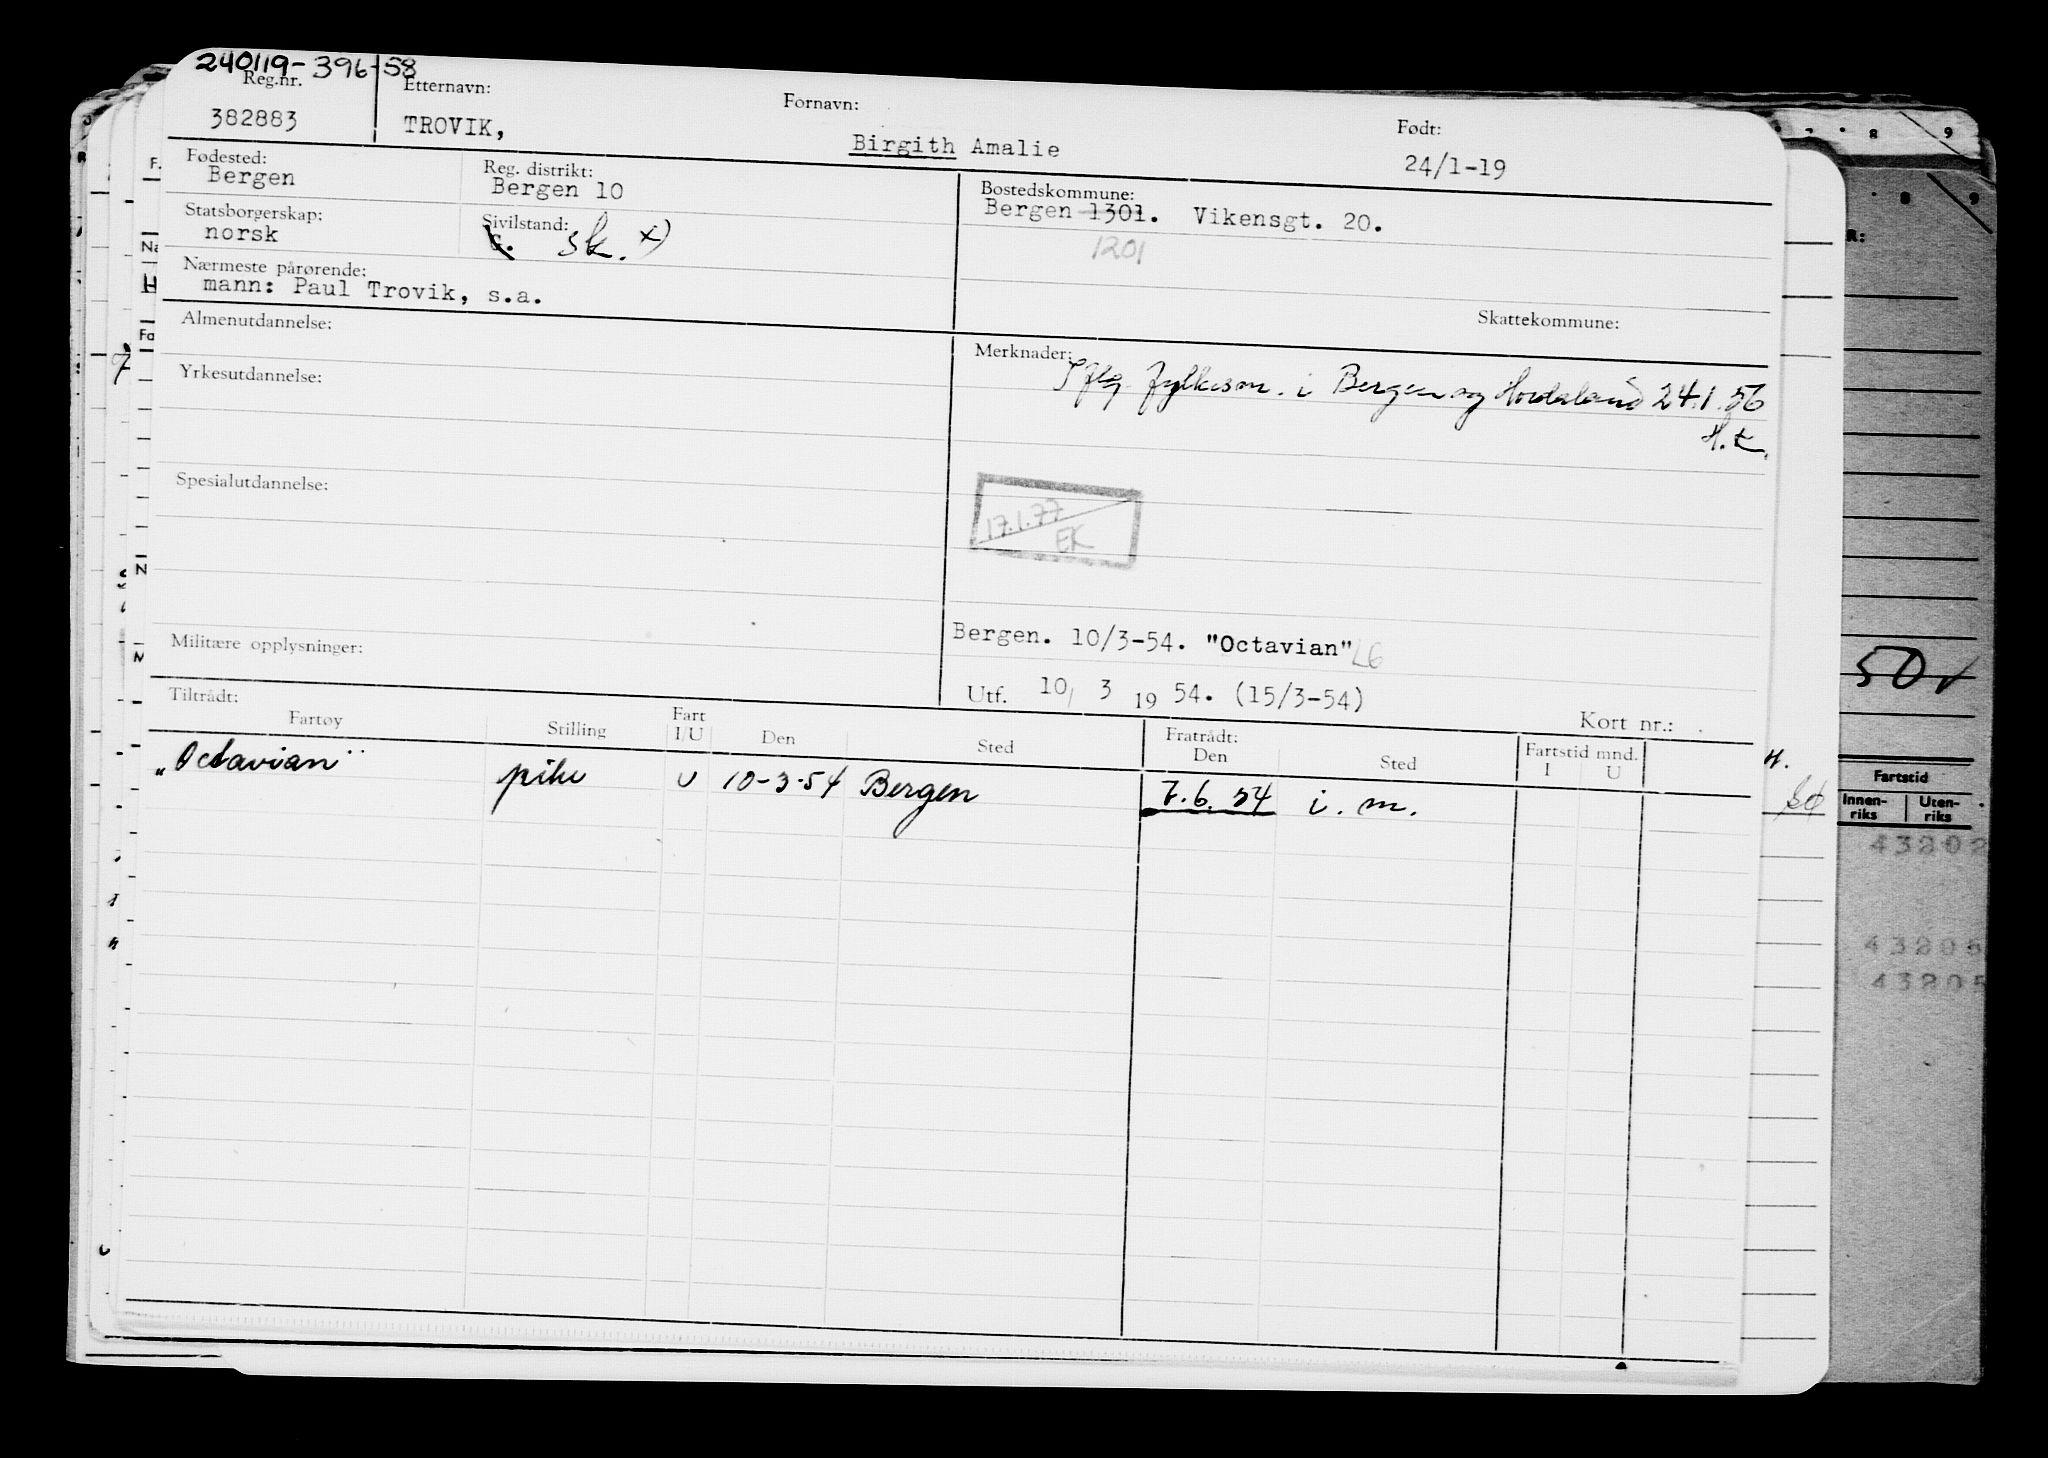 240119-396-58
Reg.nr. Etternavn: Fornavn: Født:
382883 TROVIK, Birgith Amalie 24/1-19
Fødested: Reg. distrikt: Bostedskommune:
Bergen Bergen 10 Bergen 1301. Vikensgt. 20.
1201
Statsborgerskap: Sivilstand:
norsk G. sk. x)
Nærmeste pårørende:
mann: Paul Trovik, s.a.
Skattekommune:
Almenutdannelse:
Merknader:
Iflg. fylkesm. i Bergen og Hordaland 24.1.56
Yrkesutdannelse:
Spesialutdannelse:
17.1.77
EK
Militære opplysninger:
Bergen. 10/3-54. "Octavian" L6
Utf. 10/ 3 19 54. (15/3-54)
Kort nr.:
Tiltrådt: Fratrådt:
Fartøy Stilling Fart I/U Den Sted Den Sted Fartstid mnd. I U
"Octavian" pike U 10-3-54 Bergen 7.6.54 i.m.
50
Fartstid
Innen-riks Uten-riks
43202
43205
43205